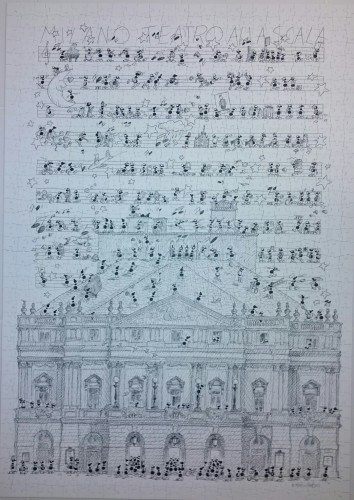 MILANO TEATRO ALLA SCALA